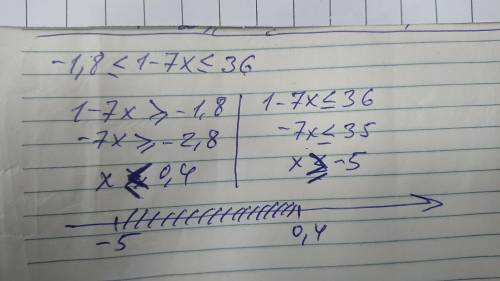 -1,8 ≤ 1-7x ≤ 36
1-7x ≥ -1,8
-7x ≥ -2,8
x ≤ 0,4
1-7x ≤ 36
-7x ≤ 35
x ≥ -5
-5 0,4